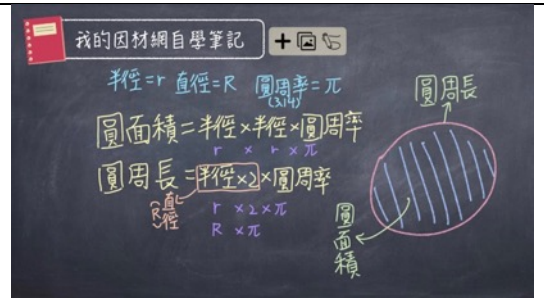 我的因材網自學筆記
半徑=r 直徑=R 圓周率=π
(3.14)
圓面積=半徑×半徑×圓周率
r × r × π
圓周長=半徑×2×圓周率
直徑
R
r × 2 × π
R × π
圓周長
圓面積